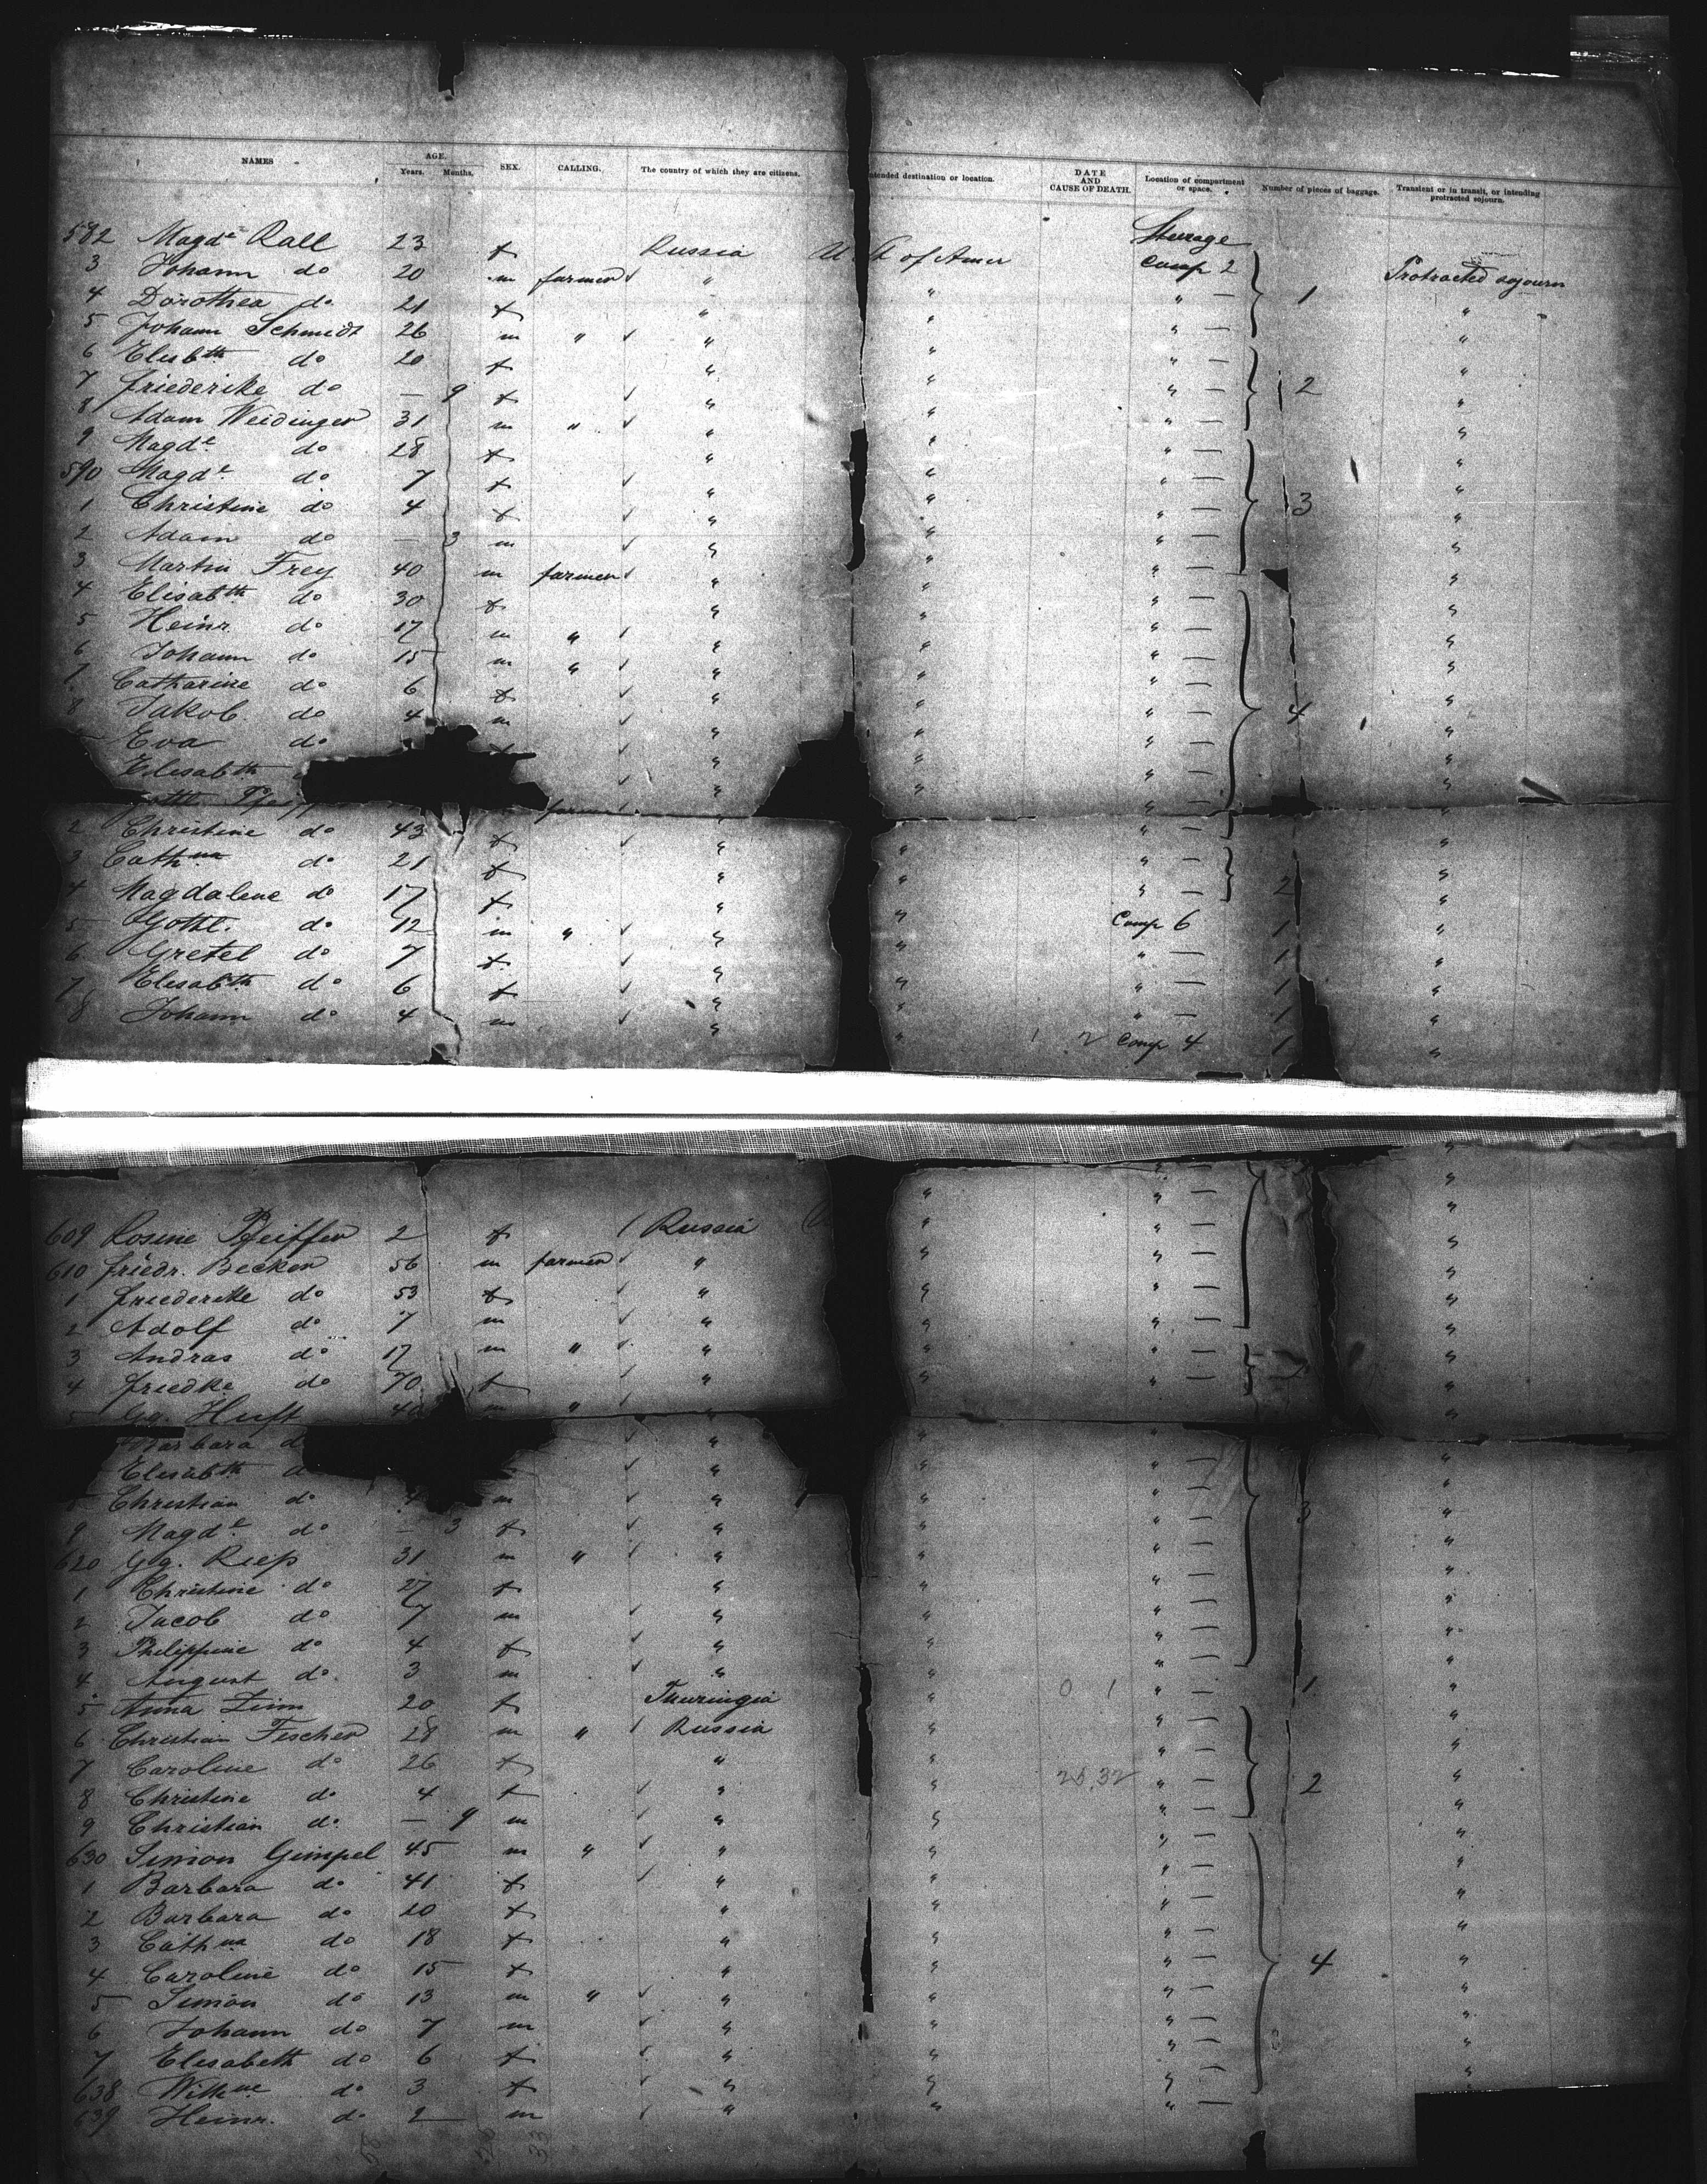 NAMES AGE. Years. Months. SEX. CALLING. The country of which they are citizens. ntended destination or location. DATE AND CAUSE OF DEATH. Location of compartment or space. Number of pieces of baggage. Transient or in transit, or intending protracted sojourn.
582 Magde Rall 23 f Russia U St of Amer Steerage
3 Johann do 20 m farmer ✓ " Comp 2 Protracted sojourn
4 Dorothea do 21 f " " " — 1 "
5 Johann Schmidt 26 m " ✓ " " " — "
6 Elisbth do 20 f " " " — "
7 Friederike do — 9 f ✓ " " " — 2 "
8 Adam Weidinger 31 m " ✓ " " " — "
9 Magde do 28 f " " " — "
590 Magde do 7 f ✓ " " " — "
1 Christine do 4 f ✓ " " " — 3 "
2 Adam do — 3 m ✓ " " " — "
3 Martin Frey 40 m farmer ✓ " " " — "
4 Elisabth do 30 f " " " — "
5 Heinr. do 17 m " ✓ " " " — "
6 Johann do 15 m " ✓ " " " — "
7 Catharine do 6 f ✓ " " " — "
8 Jakob. do 4 m ✓ " " " — 4 "
Eva do f ✓ " " " — "
Elisabth ✓ " " " — "
Pfeiff farm ✓ " — "
2 Christine do 43 f ✓ " " " — "
3 Cathna do 21 f " " " — "
4 Magdalene do 17 f " " " — 2 "
5 Gottl. do 12 m " ✓ " " Comp 6 1 "
6 Gretel do 7 f ✓ " " " — 1 "
7 Elisabth do 6 f ✓ " " " — 1 "
8 Johann do 4 m ✓ " " " — 1 "
" 1 2 Comp 4 1 "
609 Rosine Pfeiffer 2 f ✓ Russia " " — "
610 Friedr. Becker 56 m farmer ✓ " " " — "
1 Friederike do 53 f ✓ " " " — "
2 Adolf do 7 m ✓ " " " — "
3 Andras do 17 m " ✓ " " " — "
4 Friedke do 70 f ✓ " " " — "
5 Gg. Huft 40 m " ✓ " "
Barbara d ✓ " " " — "
Elisabth d ✓ " " " — "
8 Christian do 4 m ✓ " " " — 3 "
9 Magde do — 3 f ✓ " " " — "
620 Gg. Riep 31 m " ✓ " " " — "
1 Christine do 27 f " " " — "
2 Jacob do 7 m ✓ " " " — "
3 Philippine do 4 f ✓ " " " — "
4 August do. 3 m ✓ " " " — "
5 Anna Zinn 20 f Thuringia " 0 1 " — 1 "
6 Christian Fischer 28 m " ✓ Russia " " — "
7 Caroline do 26 f " " " — "
8 Christine do 4 f ✓ " " " — 2 "
9 Christian do. — 9 m ✓ " " " — "
630 Simon Gimpel 45 m " ✓ " " " — "
1 Barbara do 41 f ✓ " " " — "
2 Barbara do 20 f " " " — "
3 Cathna do 18 f " " " — "
4 Caroline do 15 f " " " — 4 "
5 Simon do 13 m " ✓ " " " — "
6 Johann do 7 m ✓ " " " — "
7 Elisabeth do 6 f ✓ " " " — "
638 Wilhne do 3 f ✓ " " " — "
639 Heinr. do 2 m ✓ " " " —